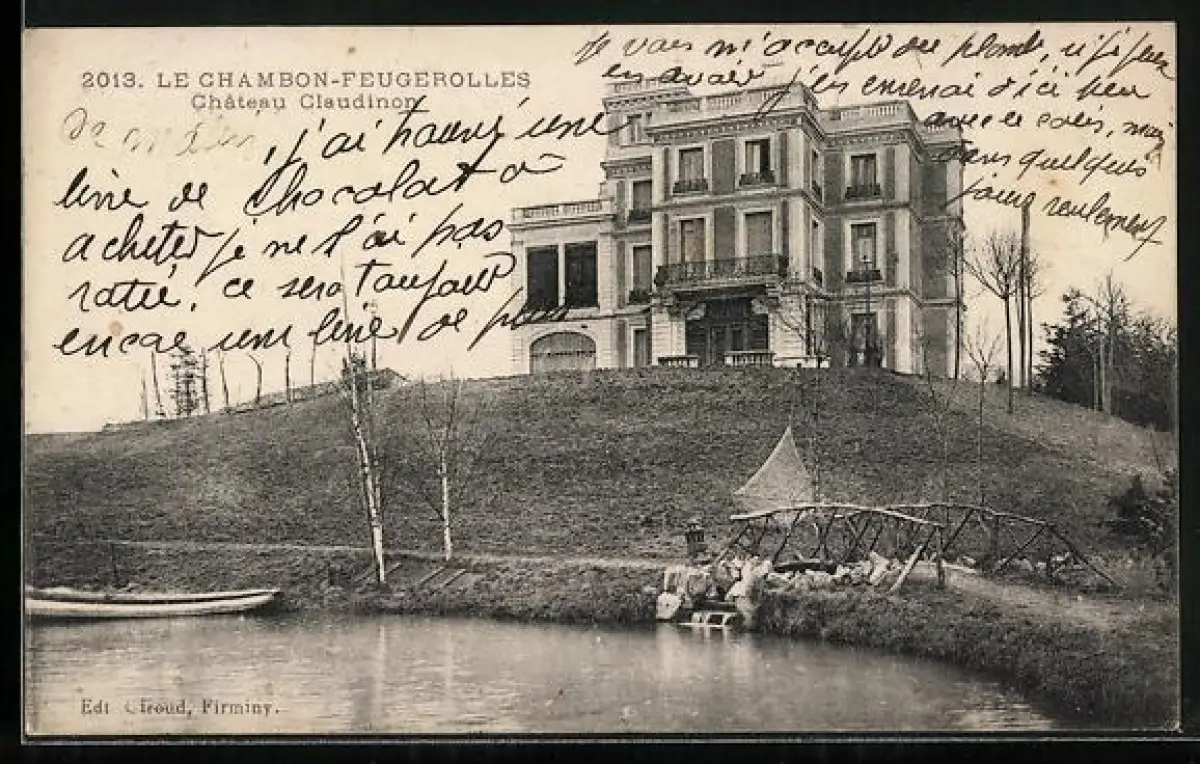 2013. LE CHAMBON-FEUGEROLLES
Château Claudinon
j'ai trouvé une
livre de chocolat à
acheter je ne l'ai pas
ratée, ce sera toujours
encore une livre de plus
Je vais m'occuper du plomb, si je peux
en avoir j'en enverrai d'ici peu
avec le colis, mais
dans quelques
jours seulement
Edt Giroud, Firminy.